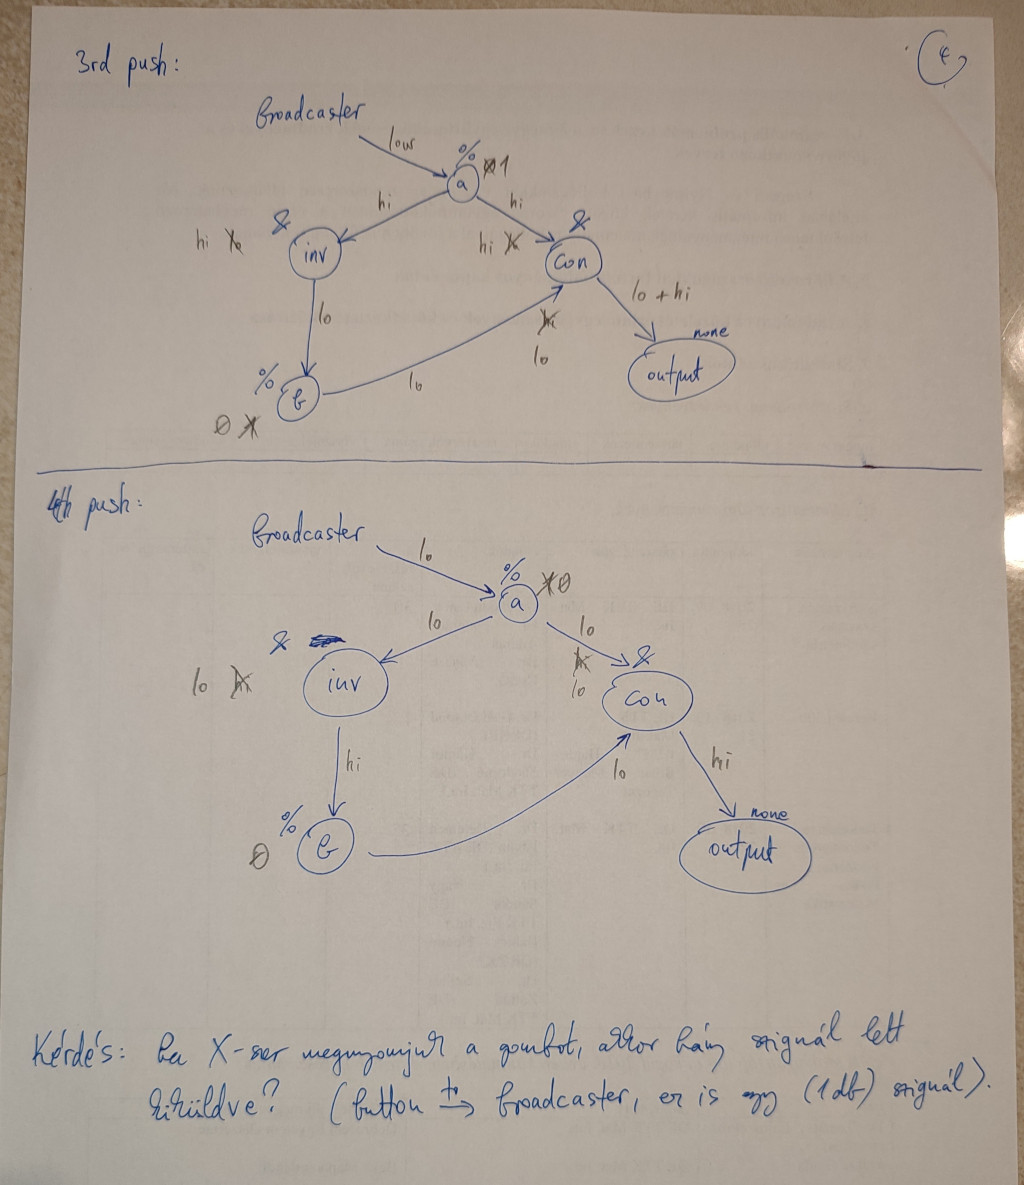 3rd push:
4
broadcaster
low
%
0 1
a
hi
hi
&
&
hi lo
inv
hi lo
con
lo
lo + hi
hi
none
lo
output
%
lo
b
0 1
4th push:
broadcaster
lo
%
1 0
a
lo
lo
&
hi
&
lo hi
inv
lo
con
hi
lo
hi
%
none
0
b
output
Kérdés: ha X-szer megnyomjuk a gombot, akkor hány szignál lett
kiküldve? (button → broadcaster, ez is egy (1 db) szignál).